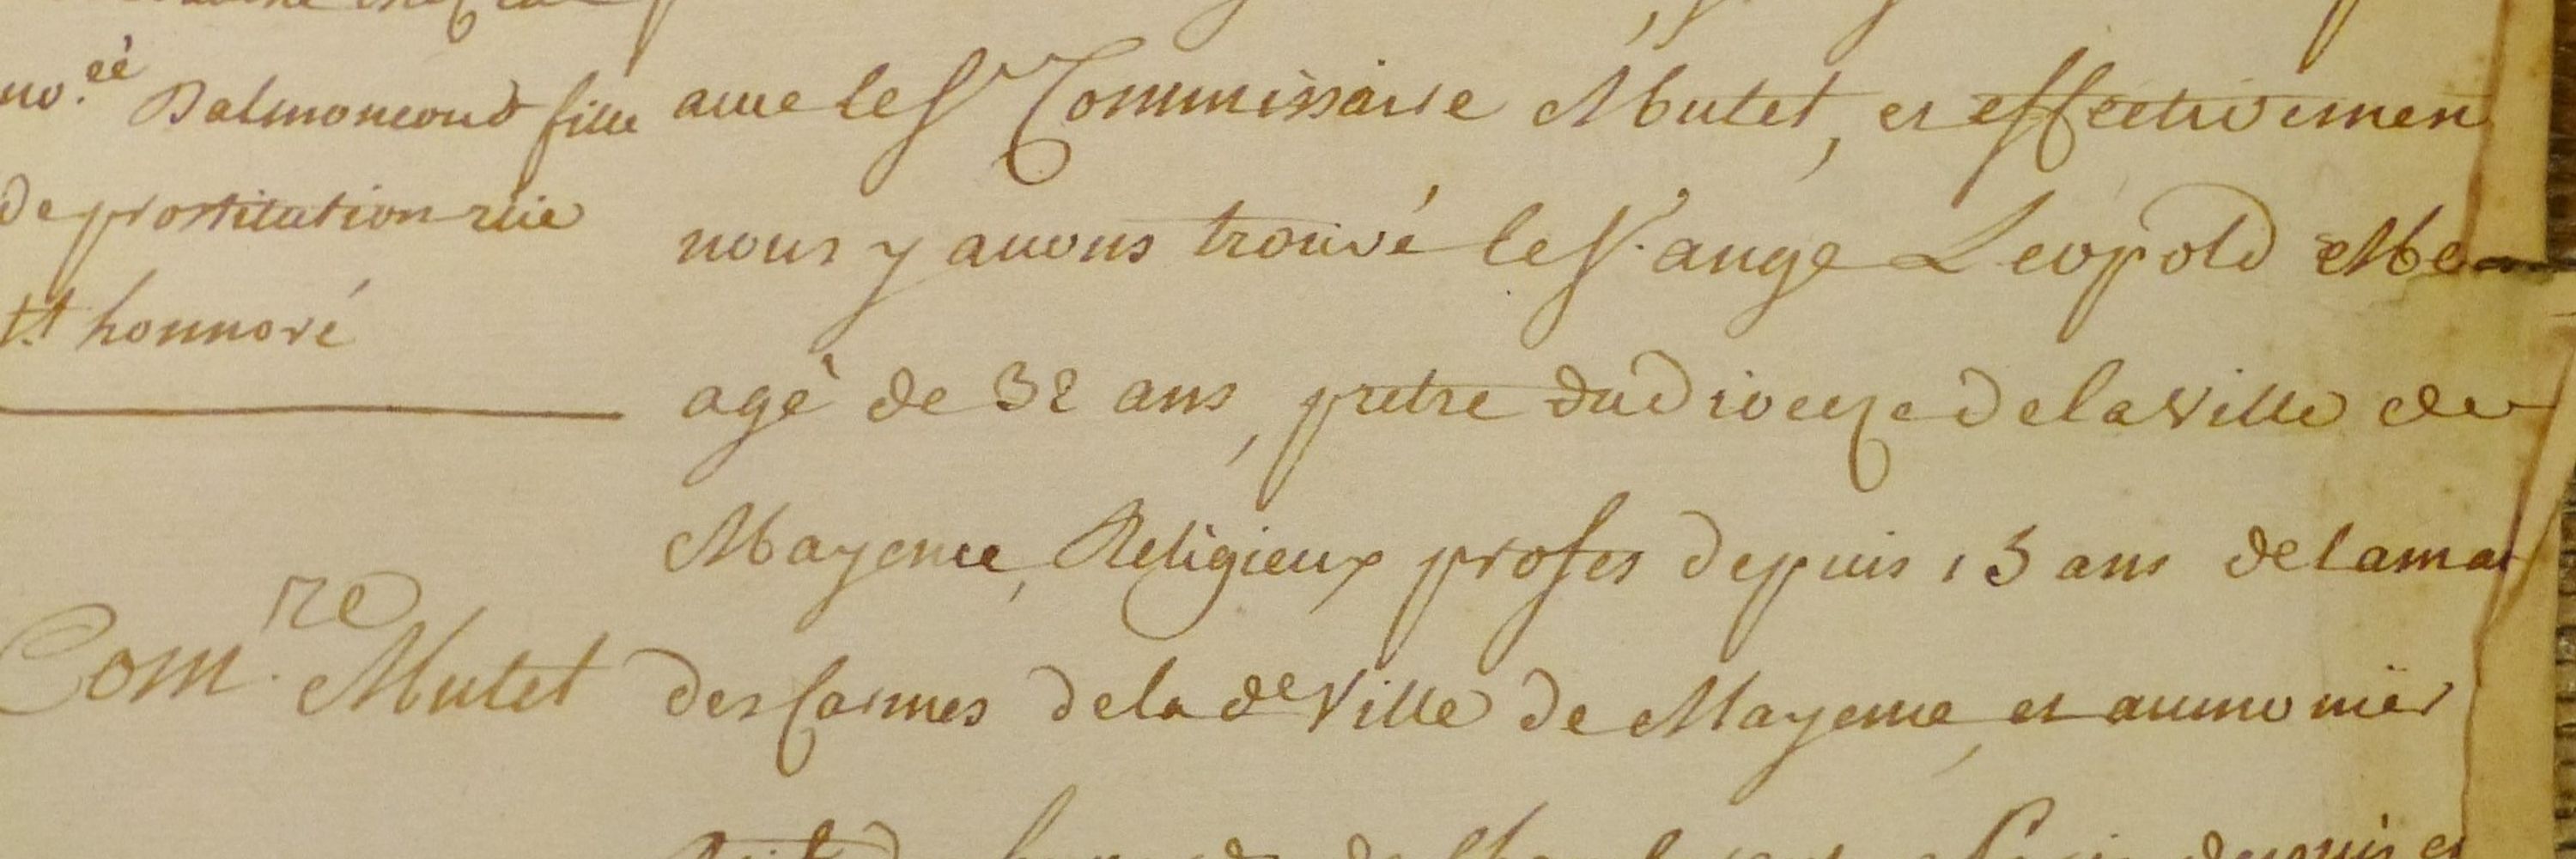 no.ée Dalmoncourt fille
de prostitution rüe
St honnoré
Com.re Mutet
avec le Sr Commissaire Mutet, et effectivemen
nous y avons trouvé le Sr. ange Leopold
agé de 32 ans, pretre du Dioceze de la Ville de
Mayence, Religieux profes depuis 13 ans de la
des Carmes de la de Ville de Mayence, et aumonier